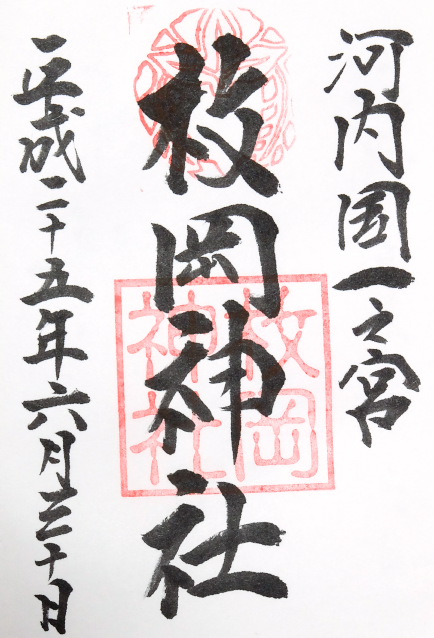 河内国一之宮
枚岡神社
平成二十五年六月三十日
枚岡
神社